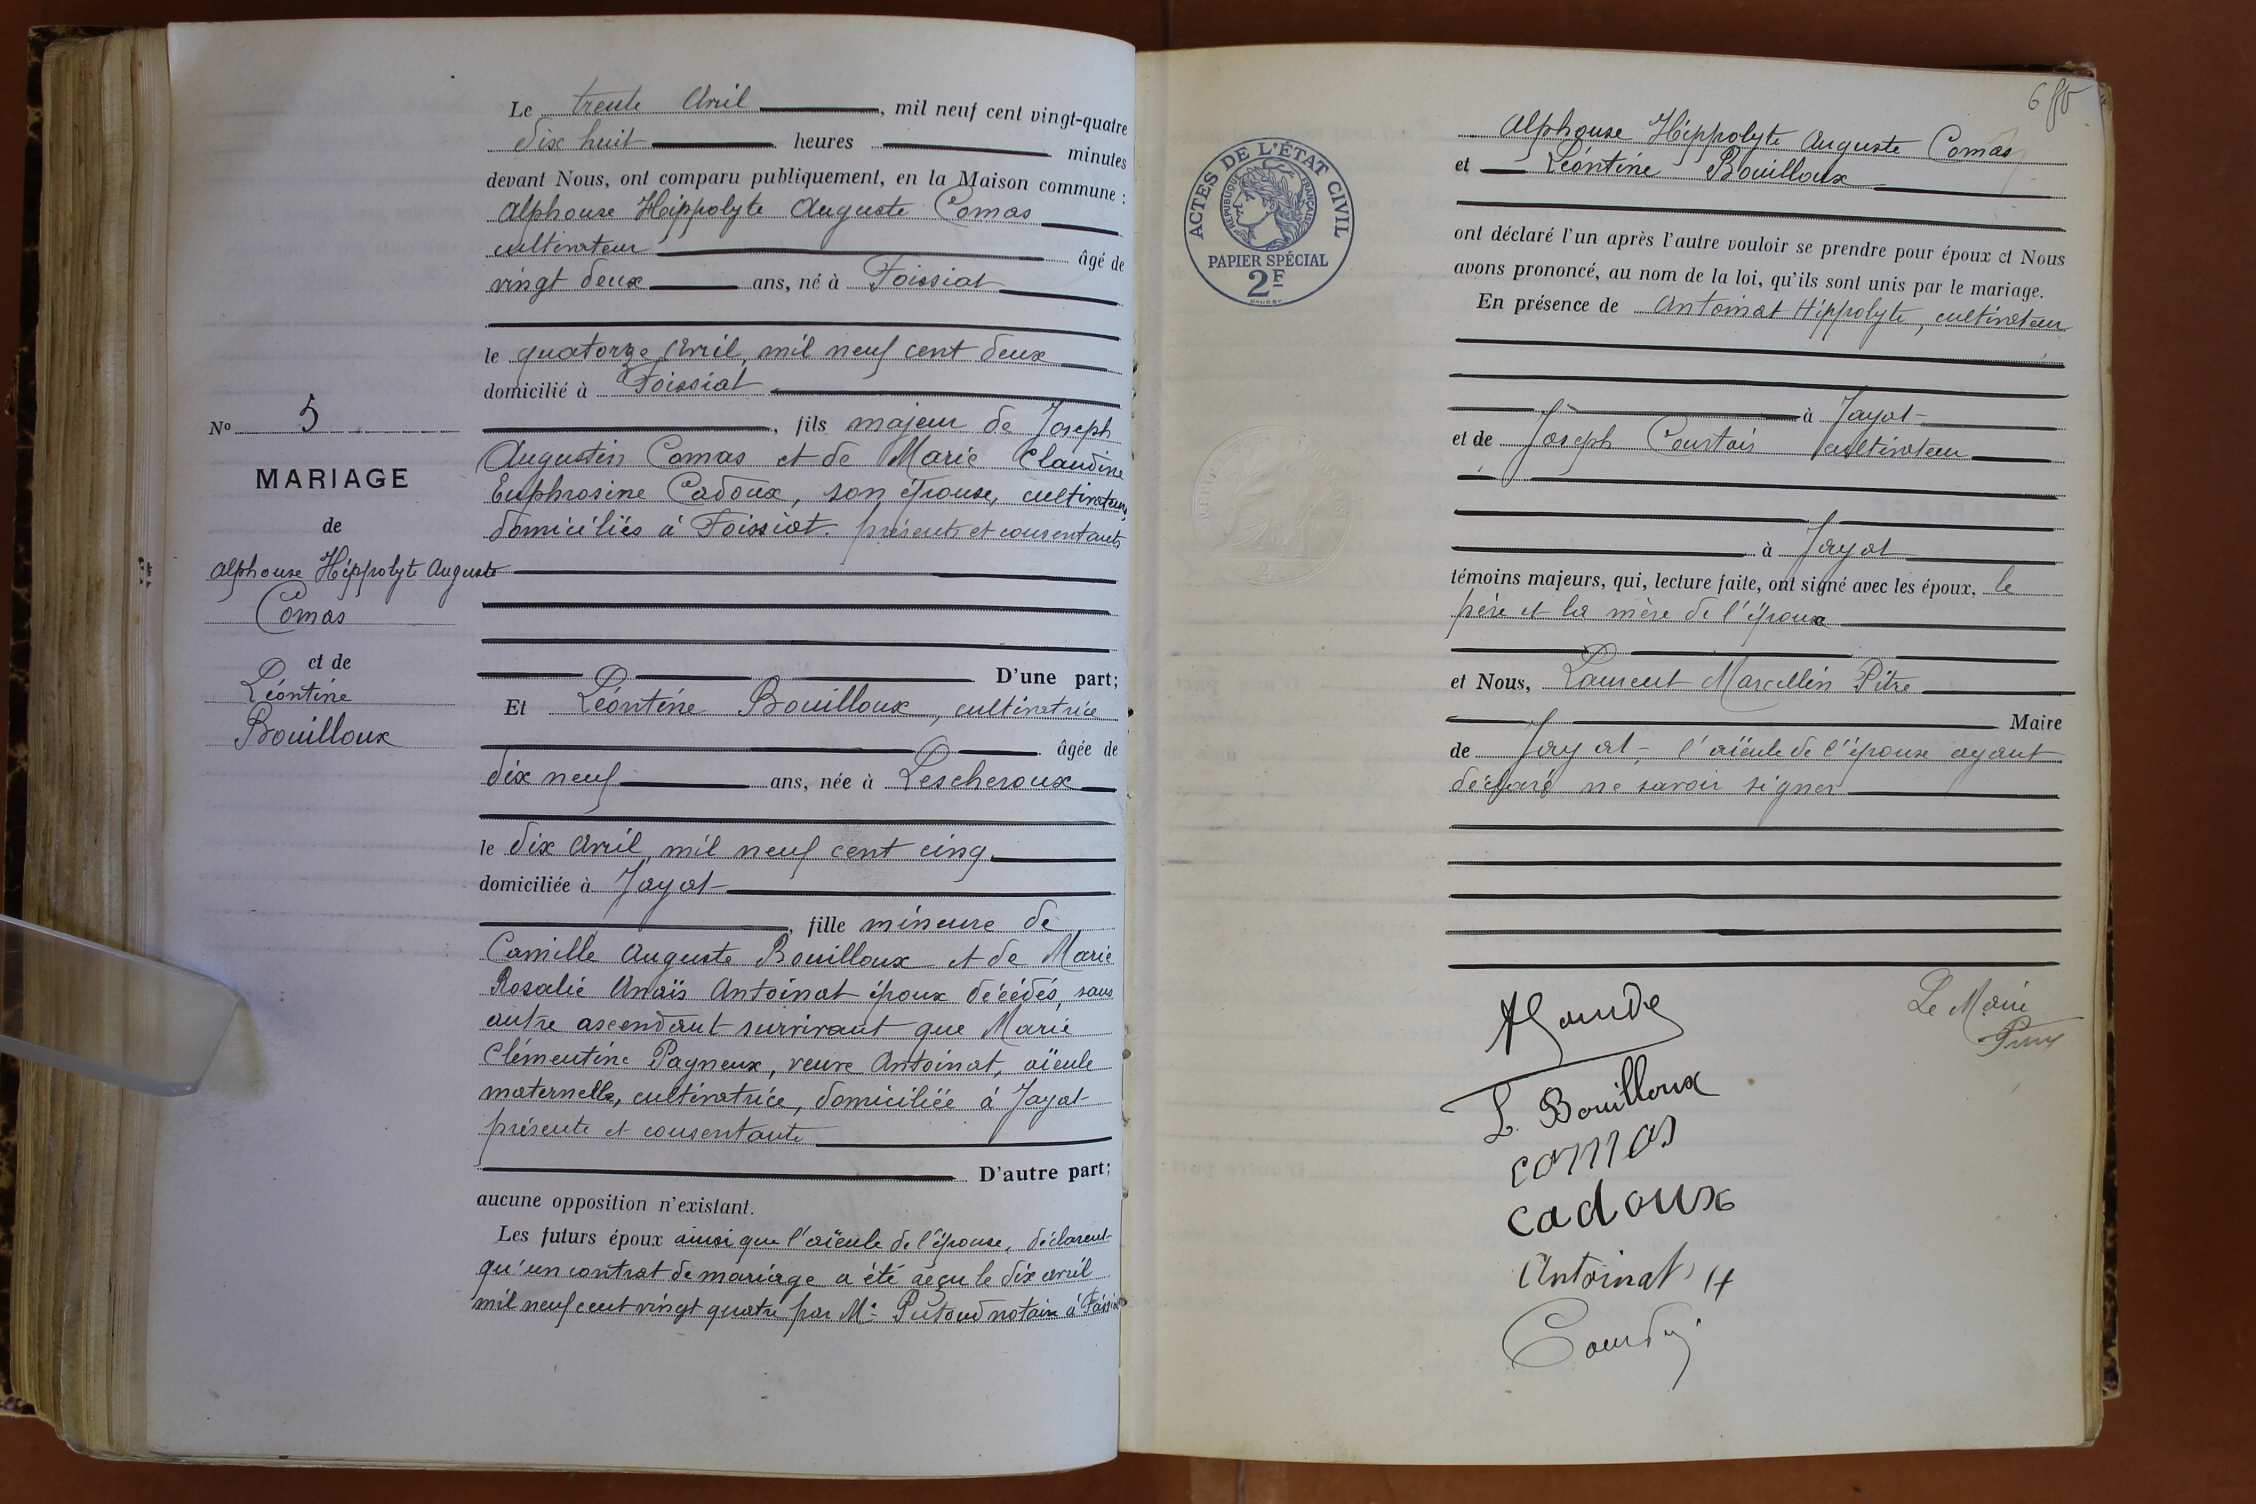 Le trente Avril, mil neuf cent vingt-quatre
dix huit heures minutes
devant Nous, ont comparu publiquement, en la Maison commune :
Alphonse Hippolyte Auguste Comas
cultivateur âgé de
vingt deux ans, né à Foissiat
le quatorze Avril, mil neuf cent deux
domicilié à Foissiat
, fils majeur de Joseph
Augustin Comas et de Marie Claudine
Euphrosine Cadoux, son épouse, cultivateurs,
domiciliés à Foissiat. présents et consentants
D'une part;
Et Léontine Bouilloux, cultivatrice
âgée de
dix neuf ans, née à Lescheroux
le dix Avril, mil neuf cent cinq
domiciliée à Jayat
, fille mineure de
Camille Auguste Bouilloux et de Marie
Rosalie Anaïs Antoinat époux décédés, sans
autre ascendant survivant que Marie
Clémentine Pagneux, veuve Antoinat, aïeule
maternelle, cultivatrice, domiciliée à Jayat
présente et consentante
D'autre part;
aucune opposition n'existant.
Les futurs époux ainsi que l'aïeule de l'épouse, déclarent
qu'un contrat de mariage a été reçu le dix avril
mil neuf cent vingt quatre par Me notaire à Foissiat
No 5
MARIAGE
de
Alphonse Hippolyte Auguste
Comas
et de
Léontine
Bouilloux
6
ACTES DE L'ÉTAT CIVIL
RÉPUBLIQUE FRANÇAISE
PAPIER SPÉCIAL
2F
Alphonse Hippolyte Auguste Comas
et Léontine Bouilloux
ont déclaré l'un après l'autre vouloir se prendre pour époux et Nous
avons prononcé, au nom de la loi, qu'ils sont unis par le mariage.
En présence de Antoinat Hippolyte, cultivateur
à Jayat
et de Joseph Courtois cultivateur
à Jayat
témoins majeurs, qui, lecture faite, ont signé avec les époux, le
père et la mère de l'époux
et Nous, Laurent Marcellin Pitre
Maire
de Jayat, l'aïeule de l'épouse ayant
déclaré ne savoir signer
Le Maire
L. Bouilloux
comas
cadoux
Antoinat H